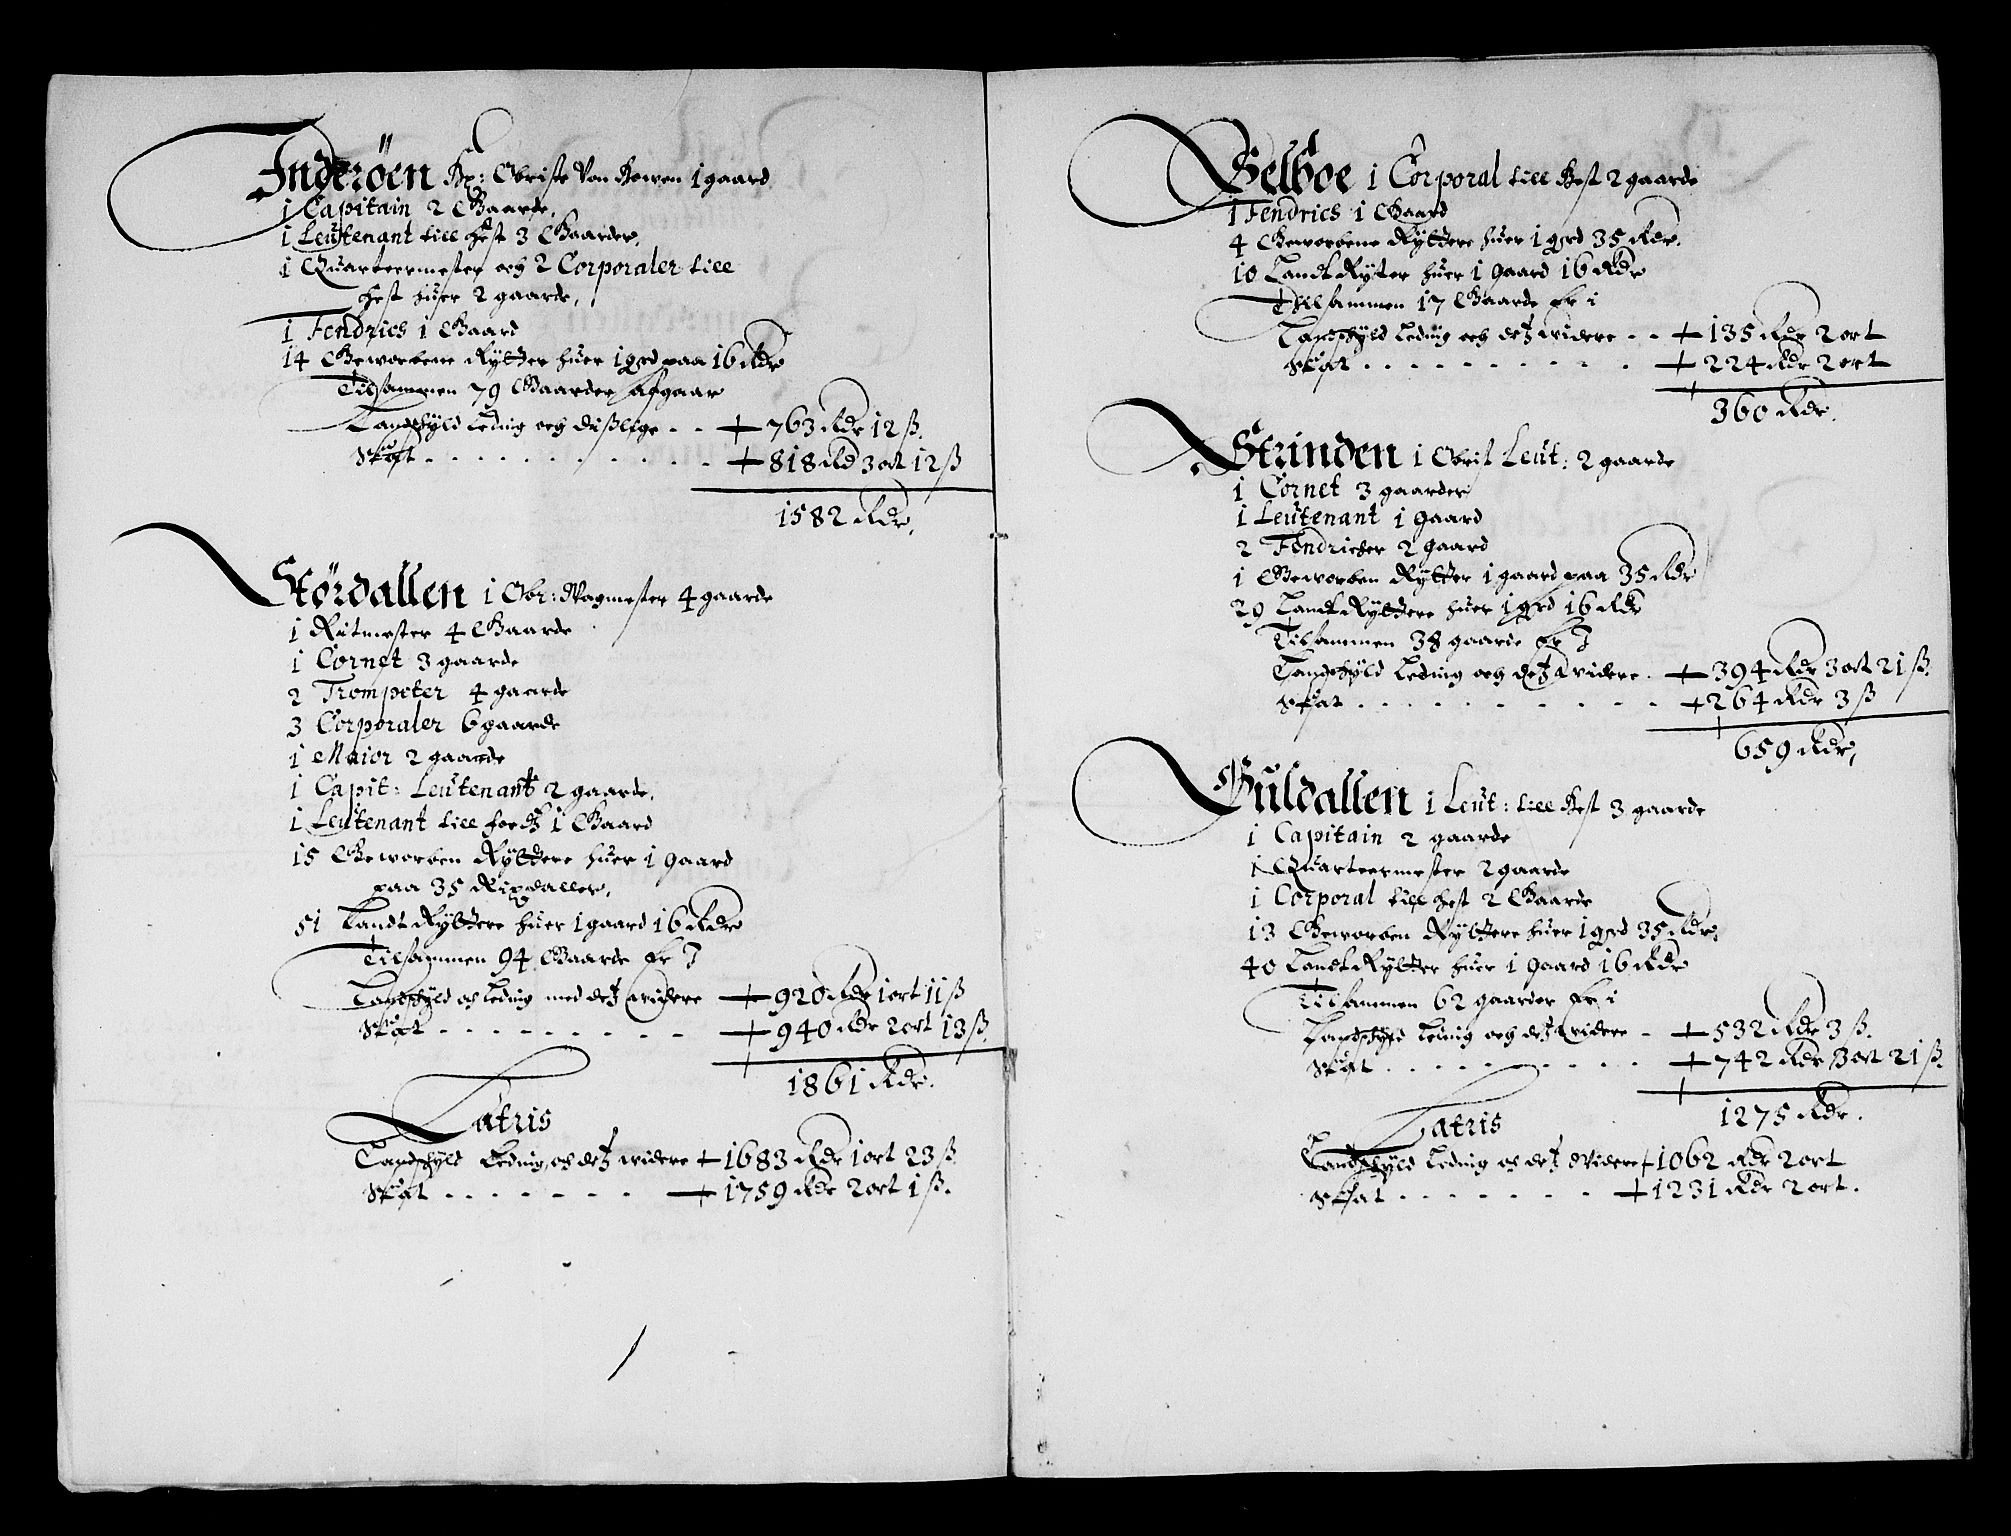 Inderöen Hr: Obriste Von Howen 1 gaard
1 Capitain 2 Gaarde,
1 Leutenant till hest 3 Gaarder,
1 Quarteermester och 2 Corporaler till
hest huer 2 gaarde,
1 Fendrich 1 Gaard
14 Geworbene Rytter huer 1 grd paa 16 Rdr
Tilsammen 79 Gaarder afgaar
Landschyld Leding och dißlige - - 763 Rdr 12 ß.
Skat - - - - - - - - - - - 818 Rd 3 ort 12 ß
1582 Rdr,
Størdallen 1 Obr: Wagmester 4 gaarde
1 Ritmester 4 Gaarde
1 Cornet 3 gaarde
2 Trompeter 4 gaarde
3 Corporaler 6 gaarde
1 Maior 2 gaarde
1 Capit: Leutenant 2 gaarde,
1 Leutenant till foedz 1 Gaard
15 Geworben Ryttere huer 1 gaard
paa 35 Rixdaller,
51 Landt Ryttere huer 1 gaard 16 Rdr
Tilsammen 94 Gaarde Er I
Landschyld och Leding med dez widere 920 Rdr 1 ort 11 ß
Skat - - - - - - - - 940 Rdr 2 ort 13 ß.
1861 Rdr.
Latris
Landschyld Leding och dez widere 1683 Rdr 1 ort 23 ß
Skat - - - - - - - 1759 Rdr 2 ort 1 ß.
Selboe 1 Corporal till Hest 2 gaarde
1 Fendrich 1 Gaard
4 Geworbene Ryttere huer 1 grd 35 Rdr.
10 Landt Ryter huer 1 gaard 16 Rdr
Tillsammen 17 Gaarde Er i
Landschyld Leding och dez widere - - 135 Rdr 2 ort
Skat - - - - - - - - - 224 Rdr 2 ort
360 Rdr.
Strinden 1 Obrist Leut: 2 gaarde
1 Cornet 3 gaarder
1 Leutenant 1 gaard
2 Fendricher 2 gaard
1 Geworben Rytter 1 gaard paa 35 Rdr
29 Landt Ryttere huer 1 grd 16 Rdr
Tilsammen 38 gaarde Er I
Langschyld Leding och dez widere - 394 Rdr 3 ort 21 ß.
Skat - - - - - - - - - - 264 Rdr 3 ß
659 Rdr,
Guldallen 1 Leut: till Hest 3 gaarde
1 Capitain 2 gaarde
1 Quarteermester 2 gaarde
1 Corporal till hest 2 Gaarde
13 Geworben Ryttere huer 1 grd 35 Rdr.
40 Landt Rytter huer 1 gaard 16 Rdr
Tilsammen 62 gaarder Er i
Landschyld Leding och dez widere - 532 Rdr 3 ß.
Skat - - - - - - - - - - 742 Rdr 3 ort 21 ß.
1275 Rdr.
Latris
Landschyld Leding och dez Widere 1062 Rdr 2 ort
Skat - - - - - - - 1231 Rdr 2 ort.